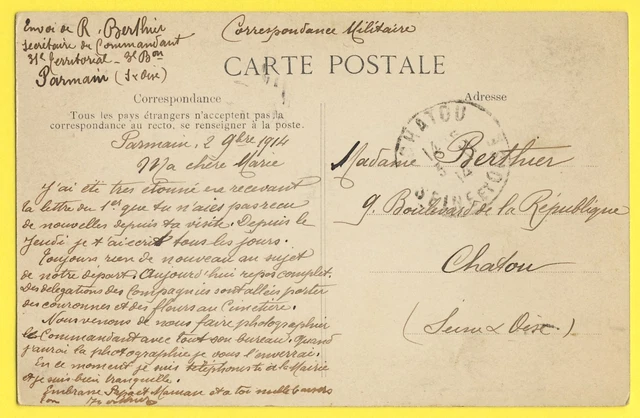 Envoi de R. Berthier
Secrétaire du Commandant
31e Territorial - 3e Bon
Parmain (S & Oise)
Correspondance Militaire
CARTE POSTALE
Correspondance
Adresse
Tous les pays étrangers n'acceptent pas la
correspondance au recto, se renseigner à la poste.
Parmain, 2 9bre 1914
Ma chère Marie
J'ai été très étonné en recevant
la lettre du 1er que tu n'aies pas reçu
de nouvelles depuis ta visite. Depuis le
Jeudi je t'ai écrit tous les jours.
Toujours rien de nouveau au sujet
de notre départ. Aujourd'hui repos complet.
Des délégations des Compagnies sont allées porter
des couronnes et des fleurs au Cimetière.
Nous venons de nous faire photographier
le Commandant avec tout son bureau. Quand
j'aurai la photographie je vous l'enverrai.
En ce moment je suis téléphoniste de la Mairie
et je suis bien tranquille.
Embrasse Papa et Maman et à toi mille baisers
Ton
CHATOU
14
SEINE ET OISE
Madame Berthier
9. Boulevard de la République
Chatou
(Seine & Oise)